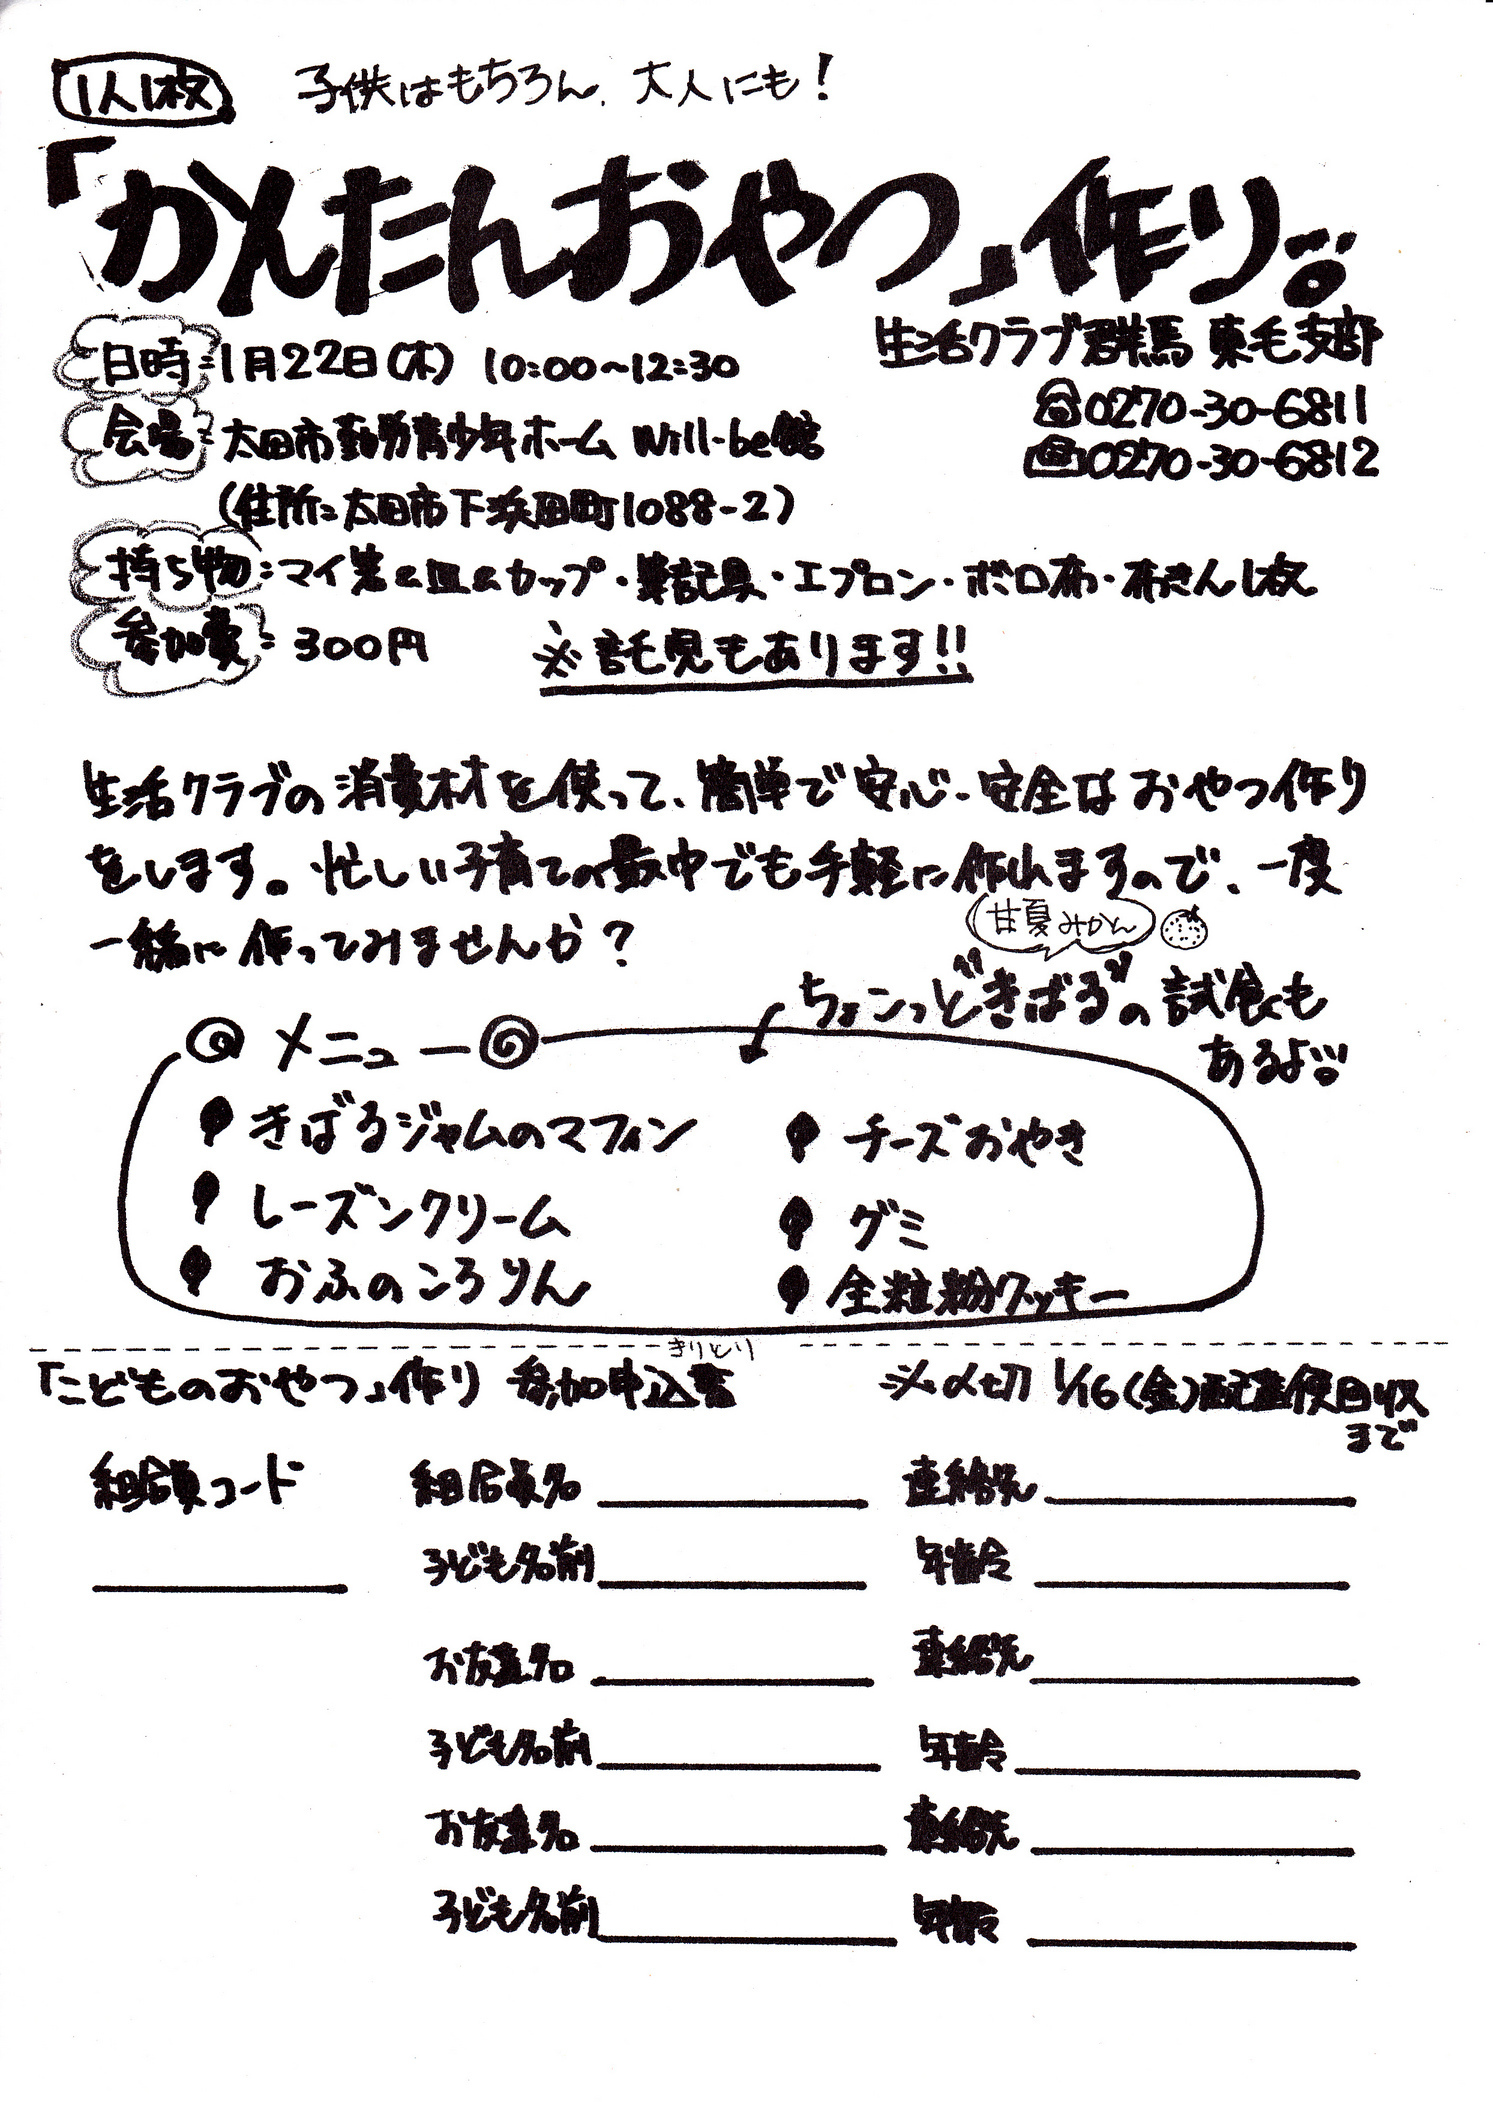 1人1枚 子供はもちろん、大人にも!
「かんたんおやつ」作り。
生活クラブ群馬 東毛支部
日時:1月22日(木) 10:00~12:30
☎0270-30-6811
会場:太田市勤労青少年ホーム Will-be館
0270-30-6812
(住所:太田市下浜田町1088-2)
持ち物:マイ箸&皿&カップ・筆記具・エプロン・ボロ布・布きん1枚
参加費:300円 ※託児もあります!!
生活クラブの消費材を使って、簡単で安心・安全なおやつ作り
をします。忙しい子育ての最中でも手軽に作れますので、一度
一緒に作ってみませんか?
甘夏みかん
ちょこっと"きばる"の試食も
あるよ
メニュー
きばるジャムのマフィン
レーズンクリーム
おふのころりん
チーズおやき
グミ
全粒粉クッキー
きりとり
「こどものおやつ」作り 参加申込書 ※〆切 1/16(金)配達便回収
まで
組合員コード 組合員名 連絡先
子ども名前 年齢
お友達名 連絡先
子ども名前 年齢
お友達名 連絡先
子ども名前 年齢